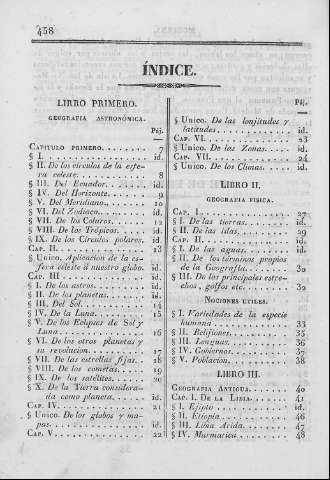 458
ÍNDICE.
LIBRO PRIMERO.
GEOGRAFIA ASTRONÓMICA.
Páj.
CAPITULO PRIMERO. 7
§ I. id.
§ II. De los círculos de la esfe-
ra celeste. 8
§ III. Del Ecuador. id.
§ IV. Del Horizonte. 9
§ V. Del Meridiano. 10
§ VI. Del Zodíaco. id.
§ VII. De los Coluros. 12
§ VIII. De los Trópicos. id.
§ IX. De los Círculos polares. id.
CAP. II. 13
§ Unico. Aplicacion de la es-
fera celeste á nuestro globo. id.
CAP. III id.
§ I. De los astros. id.
§ II. De los planetas. id.
§ III. Del Sol. 14
§ IV. De la Luna 15
§ V. De los Eclipses de Sol y
Luna. 16
§ VI. De los otros planetas y
su revolucion. 17
§ VII. De las estrellas fijas. 18
§ VIII. De los cometas. 19
§ IX. De los satélites. 20
§ X. De la Tierra considera-
da como planeta. id.
CAP. IV. 21
§ Unico. De los globos y ma-
pas. id.
CAP. V. 22
Páj.
§ Unico. De las lonjitudes y
latitudes. id.
CAP. VI. 23
§ Unico. De las Zonas. id.
CAP. VII. 24
§ Unico. De los Climas. id.
LIBRO II.
GEOGRAFIA FISICA.
CAP. I. 27
§ I. De las tierras. id.
§ II. De las islas. 29
CAP. II. id.
§ I. De las aguas. id.
§ II. De los términos propios
de la Geografía. 30
§ III. De los principales estre-
chos, golfos etc. 32
NOCIONES UTILES.
§ I. Variedades de la especie
humana 33
§ II. Relijiones. 35
§ III. Lenguas. 36
§ IV. Gobiernos. 37
§ V. Poblacion. 38
LIBRO III.
GEOGRAFIA ANTIGUA. 40
CAP. I. DE LA LIBIA. 41
§ I. Ejipto id.
§ II. Etiopia 46
§ III. Libia Arida. 47
§ IV. Marmarica 48